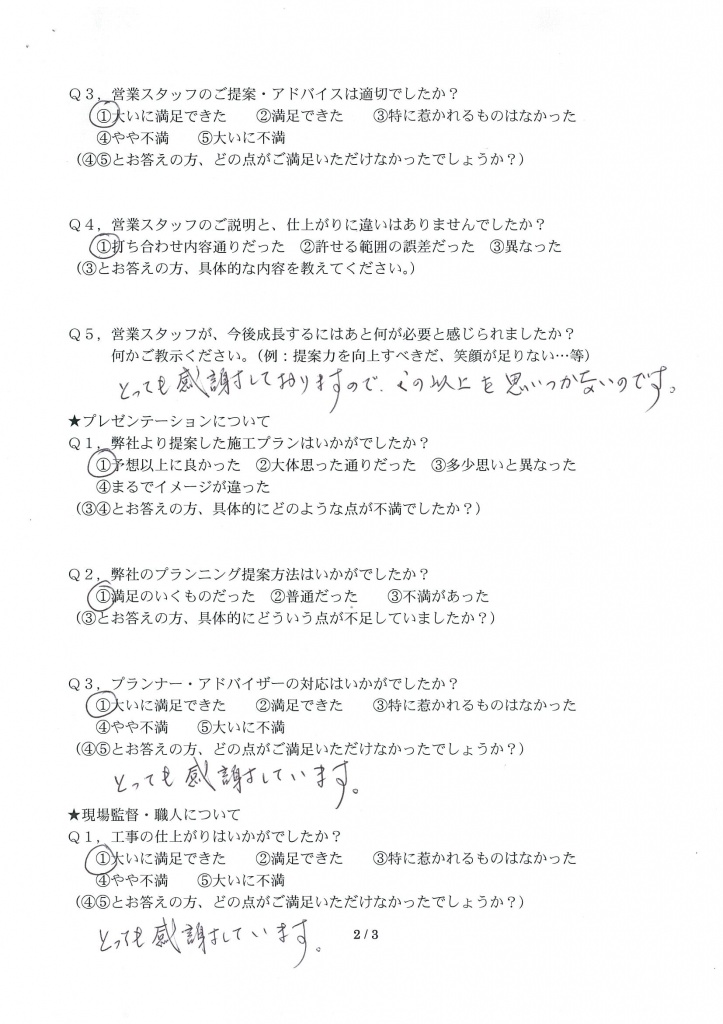 Q3，営業スタッフのご提案・アドバイスは適切でしたか？
①大いに満足できた　②満足できた　③特に惹かれるものはなかった
④やや不満　⑤大いに不満
（④⑤とお答えの方、どの点がご満足いただけなかったでしょうか？）
Q4，営業スタッフのご説明と、仕上がりに違いはありませんでしたか？
①打ち合わせ内容通りだった　②許せる範囲の誤差だった　③異なった
（③とお答えの方、具体的な内容を教えてください。）
Q5，営業スタッフが、今後成長するにはあと何が必要と感じられましたか？
何かご教示ください。（例：提案力を向上すべきだ、笑顔が足りない…等）
とっても感謝しておりますので、その以上を思いつかないのです。
★プレゼンテーションについて
Q1，弊社より提案した施工プランはいかがでしたか？
①予想以上に良かった　②大体思った通りだった　③多少思いと異なった
④まるでイメージが違った
（③④とお答えの方、具体的にどのような点が不満でしたか？）
Q2，弊社のプランニング提案方法はいかがでしたか？
①満足のいくものだった　②普通だった　③不満があった
（③とお答えの方、具体的にどういう点が不足していましたか？）
Q3，プランナー・アドバイザーの対応はいかがでしたか？
①大いに満足できた　②満足できた　③特に惹かれるものはなかった
④やや不満　⑤大いに不満
（④⑤とお答えの方、どの点がご満足いただけなかったでしょうか？）
とっても感謝しています。
★現場監督・職人について
Q1，工事の仕上がりはいかがでしたか？
①大いに満足できた　②満足できた　③特に惹かれるものはなかった
④やや不満　⑤大いに不満
（④⑤とお答えの方、どの点がご満足いただけなかったでしょうか？）
とっても感謝しています。
2/3